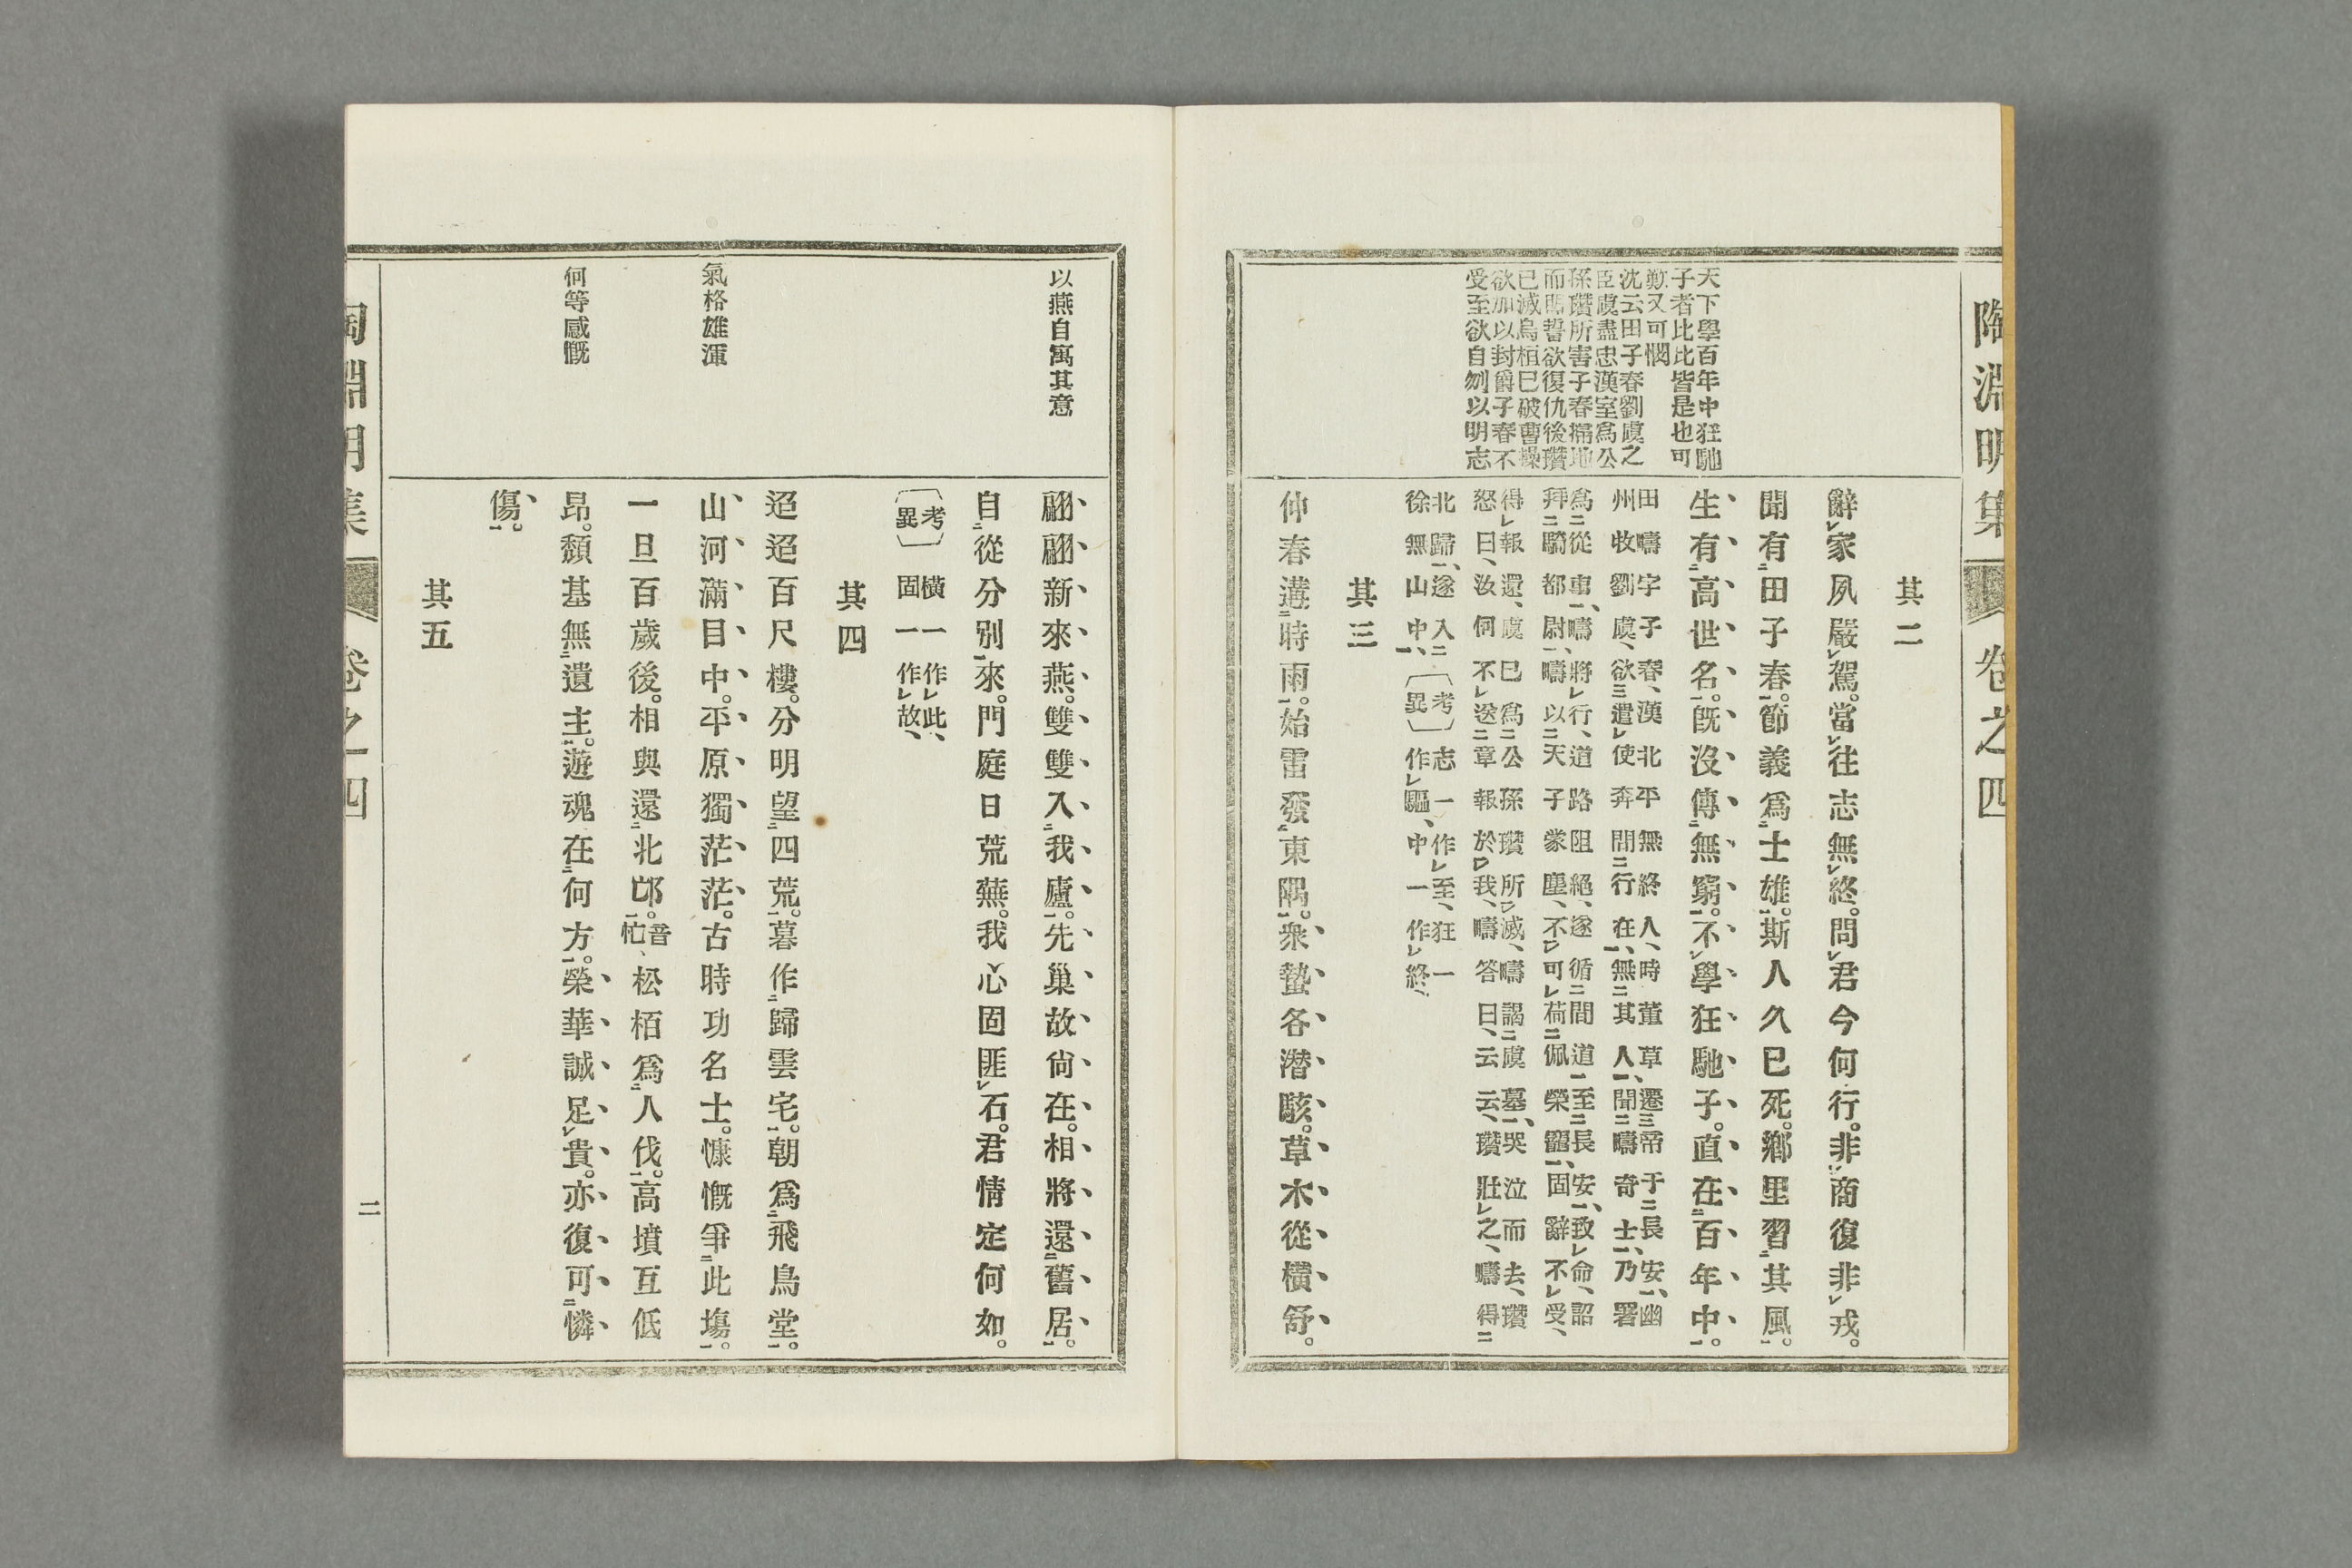 陶淵明集 卷之四
天下學百年中狂馳
子者比比皆是也可
歎又可憫
沈云田子春劉虞之
臣虞盡忠漢室爲公
孫瓚所害子春掃地
而盟誓欲復仇後瓚
已滅烏桓已破曹操
欲加以封爵子春不
受至欲自刎以明志
其二
辭家夙嚴駕。當往志無終。問君今何行。非商復非戎。
聞有田子春。節義爲士雄。斯人久已死。鄕里習其風。
生有高世名。既沒傳無窮。不學狂馳子。直在百年中。
田疇字子春、漢北平無終人、時董草遷帝于長安、幽
州收劉虞、欲遣使奔間行在、無其人、聞疇奇士、乃署
爲從事、疇將行、道路阻絕、遂循間道至長安、致命、詔
拜騎都尉、疇以天子蒙塵、不可荷佩榮寵、固辭不受、
得報還、虞已爲公孫瓚所滅、疇謁虞墓、哭泣而去、瓚
怒曰、汝何不送章報於我、疇答曰、云云、瓚壯之、疇得
北歸、遂入
徐無山中、
〔考異〕志一作至、狂一
作驅、中一作終、
其三
仲春遘時雨。始雷發東隅。衆蟄各潛駭。草木從橫舒。
以燕自寓其意
翩翩新來燕。雙雙入我廬。先巢故尙在。相將還舊居。
自從分別來。門庭日荒蕪。我心固匪石。君情定何如。
〔考異〕橫一作此、
固一作故、
其四
氣格雄渾
迢迢百尺樓。分明望四荒。暮作歸雲宅。朝爲飛鳥堂。
山河滿目中。平原獨茫茫。古時功名士。慷慨爭此場。
一旦百歲後。相與還北邙。音忙、松栢爲人伐。高墳互低
何等感慨
昂。頹基無遺主。遊魂在何方。榮華誠足貴。亦復可憐
傷。
其五
陶淵明集 卷之四 二